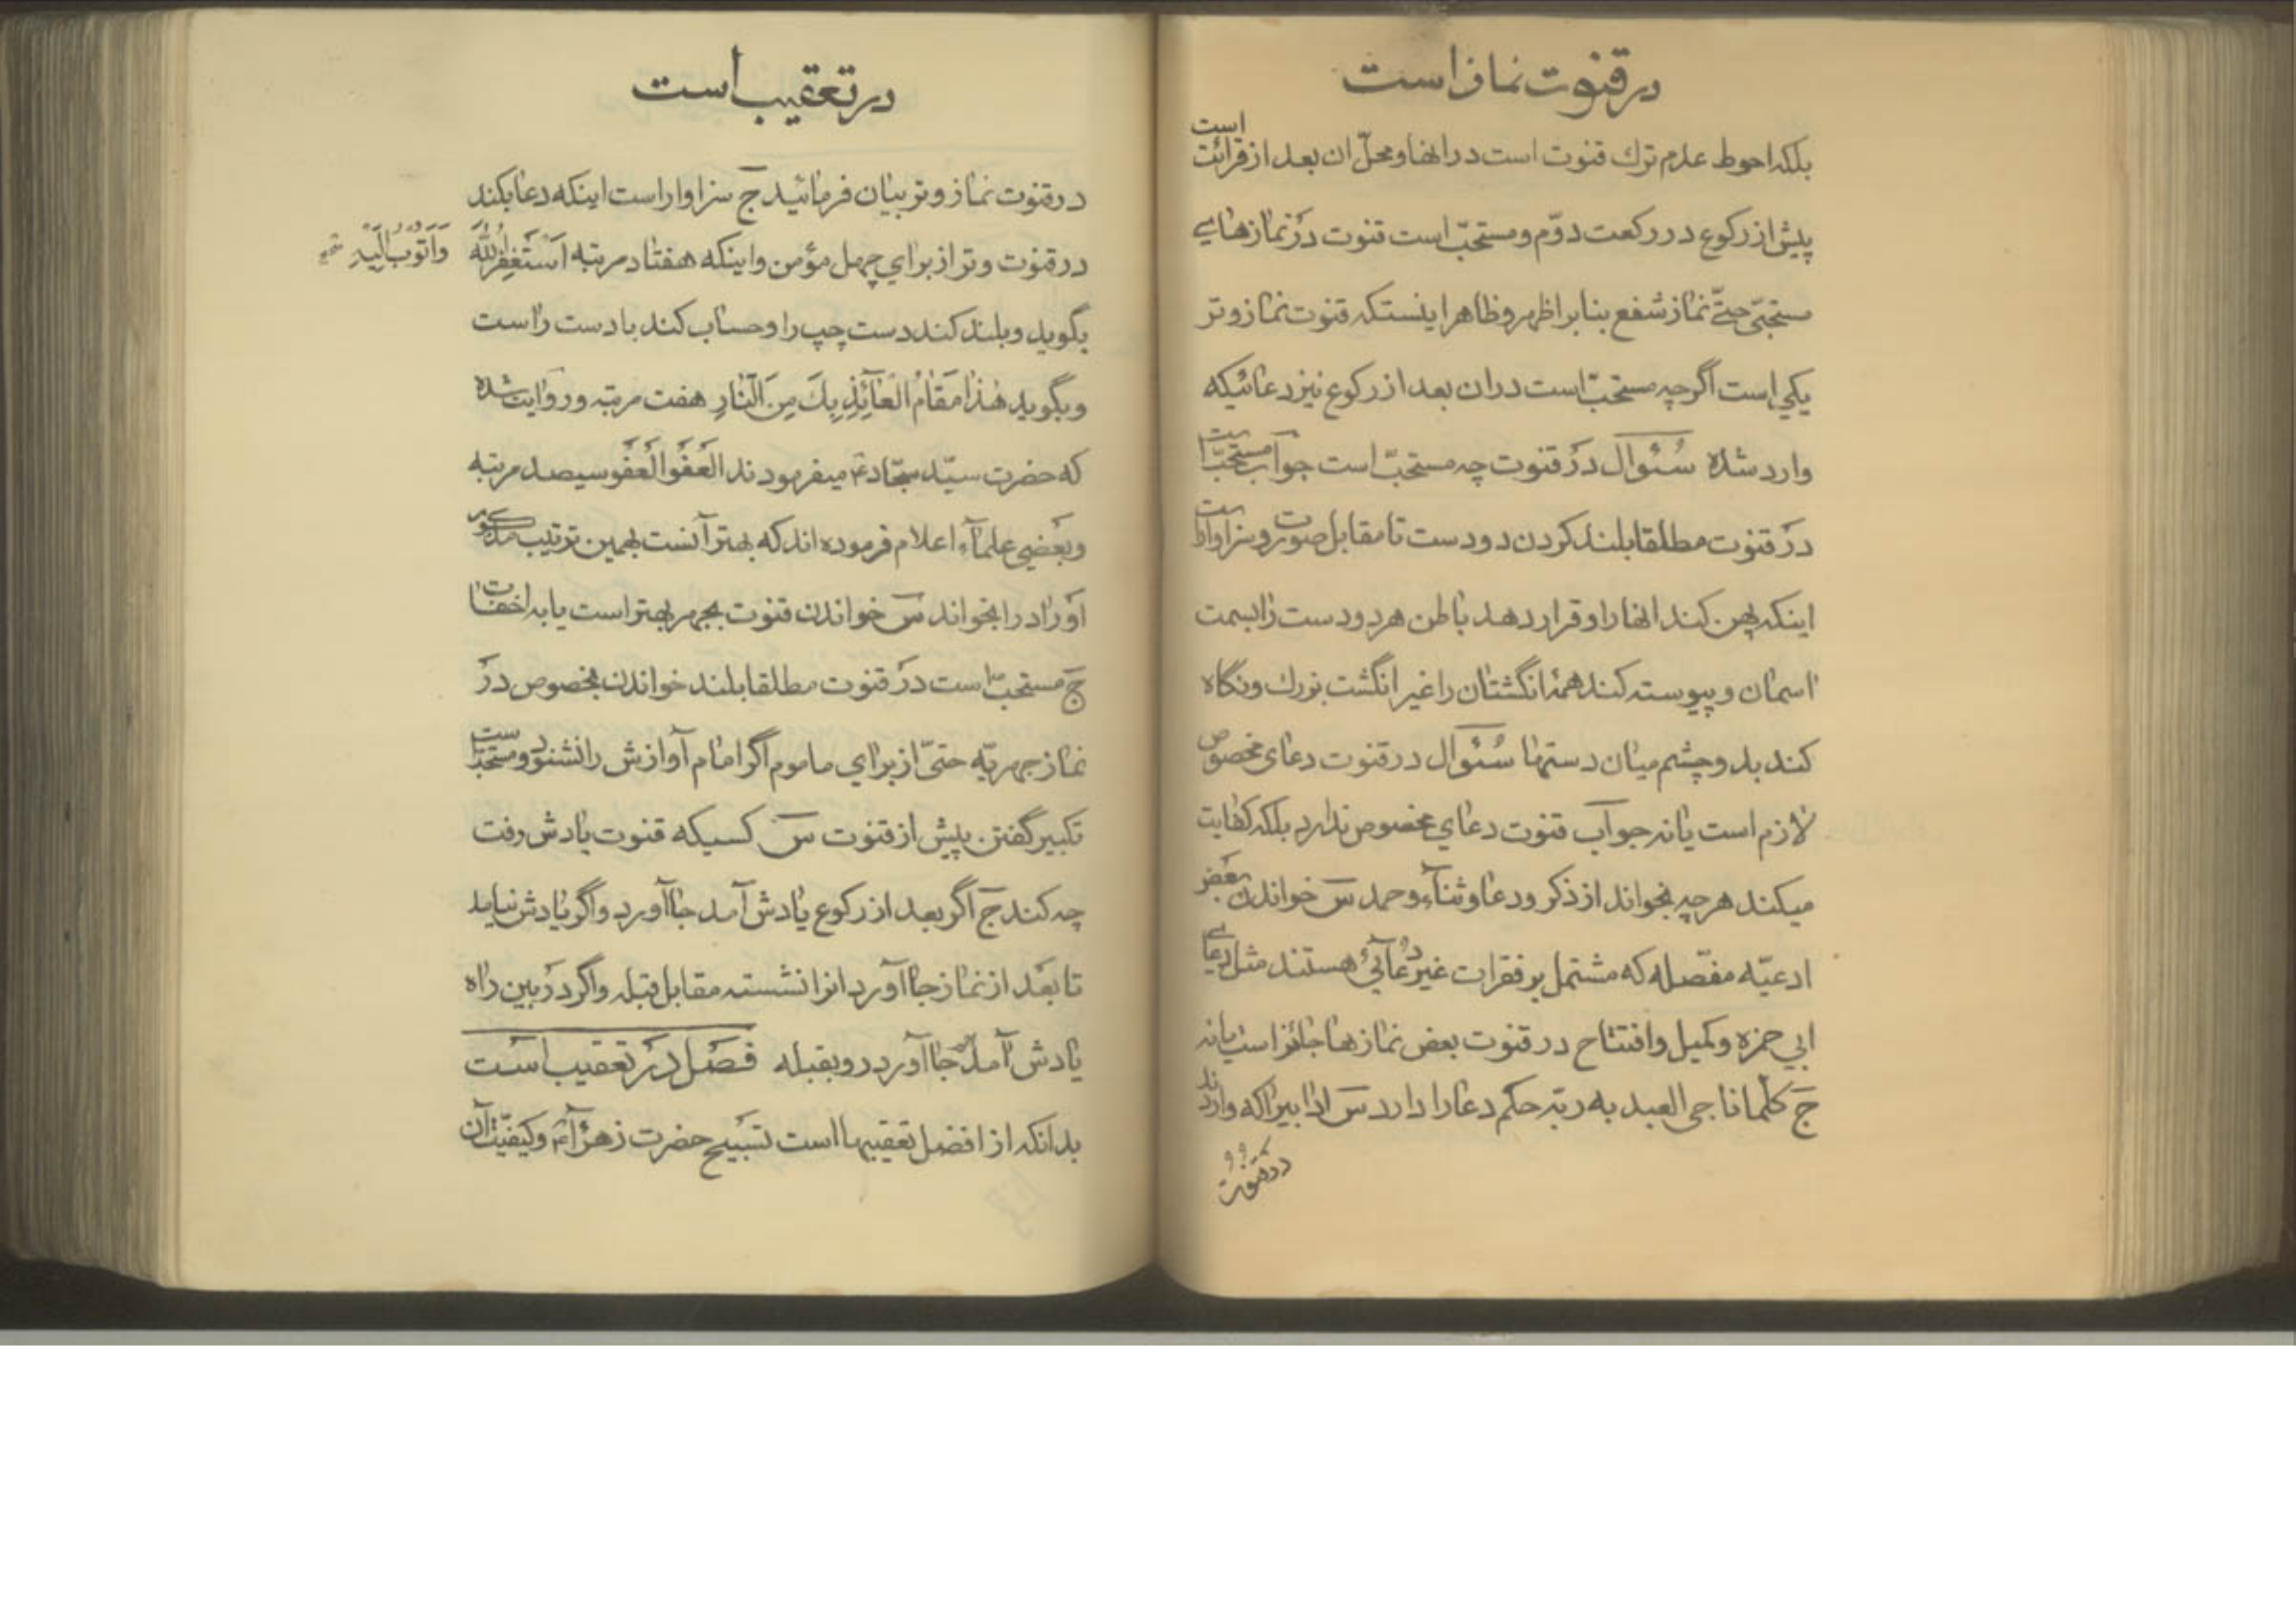 در قنوت نماز است
بلکه احوط عدم ترك قنوت است در انها و محلّ ان بعد از قرائت است
پیش از رکوع در رکعت دوّم و مستحبّ است قنوت در نمازهای
مستحبّی حتّی نماز شفع بنابر اظهر و ظاهر اینستکه قنوت نماز وتر
یکی است اگرچه مستحبّ است در ان بعد از رکوع نیز دعائیکه
وارد شده سُئوال در قنوت چه مستحبّ است جواب مستحبّ است
در قنوت مطلقا بلند کردن دو دست تا مقابل صورت و سزاوار است
اینکه پهن کند انها را و قرار دهد باطن هر دو دست را بسمت
اسمان و پیوسته کند همهٔ انگشتان را غیر انگشت بزرك و نگاه
کند بدو چشم میان دستها سُئوال در قنوت دعای مخصوص
لازم است یا نه جواب قنوت دعای مخصوص ندارد بلکه کفایت
میکند هرچه بخواند از ذکر و دعا و ثنآء و حمد سؔ خواندن بعض
ادعیّه مفصّله که مشتمل بر فقرات غیر دُعآئی هستند مثل دعای
ابی حمزه و کمیل و افتتاح در قنوت بعض نمازها جائز است یا نه
جؔ کلّما ناجی العبد به ربّه حکم دعا را دارد سؔ ادابیرا که وارد
در قنوت
در تعقیب است
در قنوت نماز وتر بیان فرمائید جؔ سزاوار است اینکه دعا بکند
در قنوت وتر از برای چهل مؤمن و اینکه هفتاد مرتبه اَسْتَغفِرُاللّٰهَ وَاَتُوبُ اِلَیْهِ
بگوید و بلند کند دست چپ را و حساب کند با دست راست
و بگوید هٰذا مَقامُ الْعآئِذِ بِكَ مِنَ النّارِ هفت مرتبه و روایت شده
که حضرت سیّد سجّاد ع میفرمودند العَفوَ العَفوَ سیصد مرتبه
و بعضی علمآء اعلام فرموده اند که بهتر آنست بهمین ترتیب مذکور
اوراد را بخواند سؔ خواندن قنوت بجهر بهتر است یا به اخفات
جؔ مستحبّ است در قنوت مطلقا بلند خواندن بخصوص در
نماز جهریّه حتّی از برای ماموم اگر امام آوازش را نشنود و مستحبّ است
تکبیر گفتن پیش از قنوت سؔ کسیکه قنوت یادش رفت
چه کند جؔ اگر بعد از رکوع یادش آمد جا آورد و اگر یادش نیامد
تا بعد از نماز جا آورد انرا نشسته مقابل قبله و اگر در بین راه
یادش آمد جا آورد رو بقبله فصل در تعقیب است
بدانکه از افضل تعقیبها است تسبیح حضرت زهرآء ع و کیفیّت آن